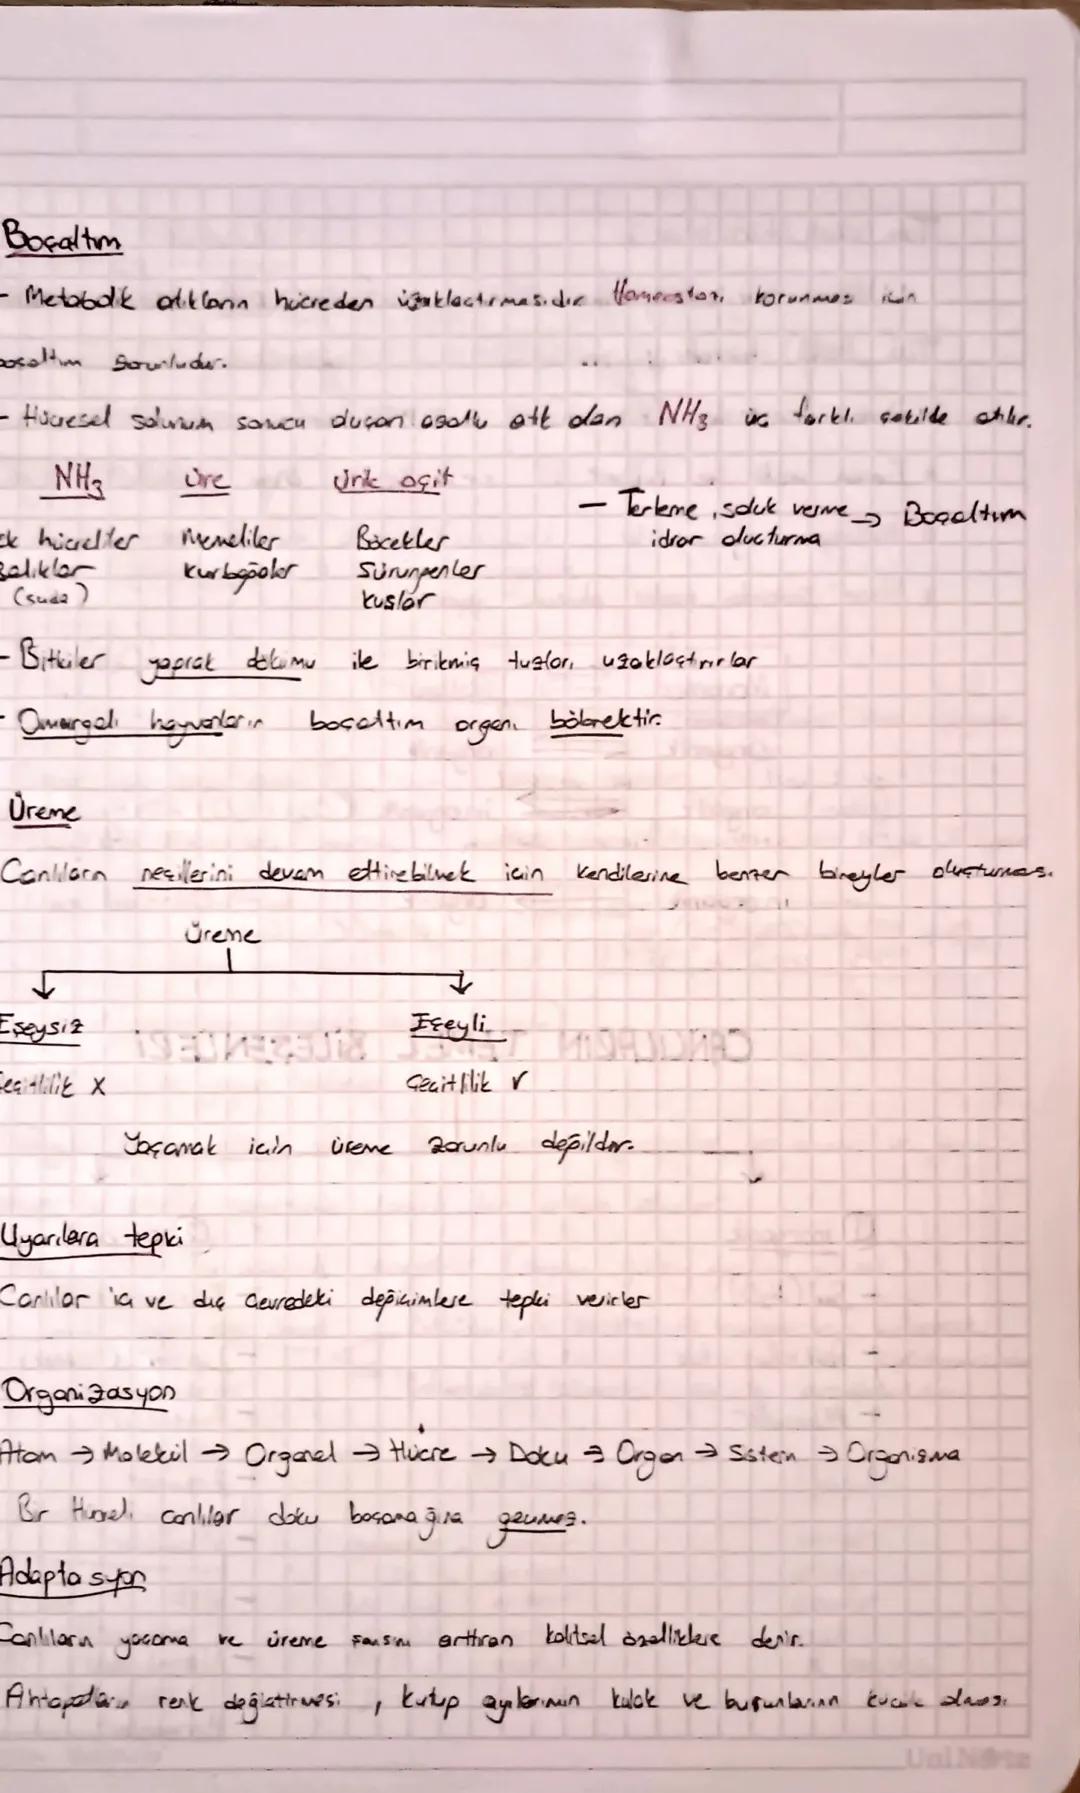 Boşaltım
- Metabolik atıkların hücreden uzaklaştırmasıdır Homeostazi korunması için
boşaltım zorunludur.
- Hücresel solunum sonucu oluşan azotlu atık olan NH3 üç farklı şekilde atılır.
NH3 Üre Ürik asit
- Terleme, soluk verme → Boşaltım
idrar oluşturma
ek hücreliler Memeliler Böcekler
Balıklar Kurbağalar Sürüngenler
(suda) kuşlar
- Bitkiler yaprak dökümü ile birikmiş tuzları uzaklaştırırlar
- Omurgalı hayvanların boşaltım organı böbrektir.
Üreme
Canlıların nesillerini devam ettirebilmek için kendilerine benzer bireyler oluşturması.
Üreme
Eşeysiz Eşeyli
Çeşitlilik X Çeşitlilik ✓
Yaşamak için üreme zorunlu değildir.
Uyarılara tepki
Canlılar iç ve dış çevredeki değişimlere tepki verirler
Organizasyon
Atom → Molekül → Organel → Hücre → Doku → Organ → Sistem → Organizma
Bir Hücreli canlılar doku basamağına geçmez.
Adaptasyon
Canlıların yaşama ve üreme şansını arttıran kalıtsal özelliklere denir.
Ahtapotların renk değiştirmesi, kutup ayılarının kulak ve burunlarının küçük olması
UniNote